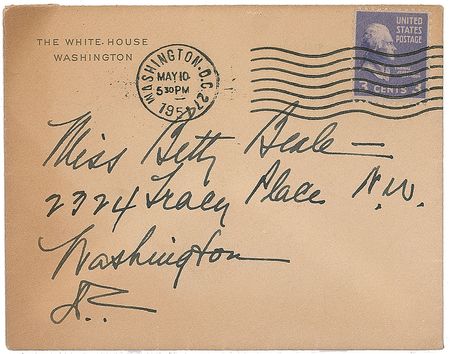 THE WHITE·HOUSE
WASHINGTON
WASHINGTON, D.C. 274
MAY 10
5 30 PM
1954
UNITED
STATES
POSTAGE
3 CENTS 3
Miss Betty Beale —
2324 Tracy Place N.W.
Washington